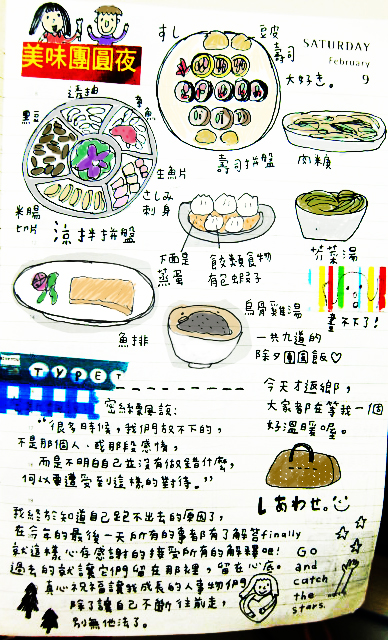 美味團圓夜
すし
豆皮
壽司
SATURDAY
February
9
大好き。
章魚
黑豆
生魚片
さしみ
刺身
壽司拼盤
肉羹
米腸
切片
涼拌拼盤
下面是
蒸蛋
飲類食物
有包蝦子
芥菜湯
畫不下了!
魚排
烏骨雞湯
一共九道的
除夕團圓飯♡
TYPET
今天才返鄉,
大家都在等我一個
好溫暖喔。
“很多時候,我們放不下的,
不是那個人、或那段感情,
而是不明白自己並沒有做錯什麼,
何以要遭受到這樣的對待。”
しあわせ。
我終於知道自己走不出去的原因了,
在今年的最後一天所有的事都有了解答finally
就這樣心存感謝的接受所有的解釋吧!
過去的就讓它們留在那裡,留在心底。
Go
and
catch
the
stars.
真心祝福讓我成長的人事物們
除了讓自己不斷往前走,
別無他法了。